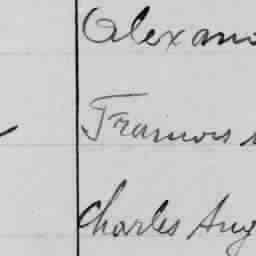 Alexan
Francois
Charles Aug